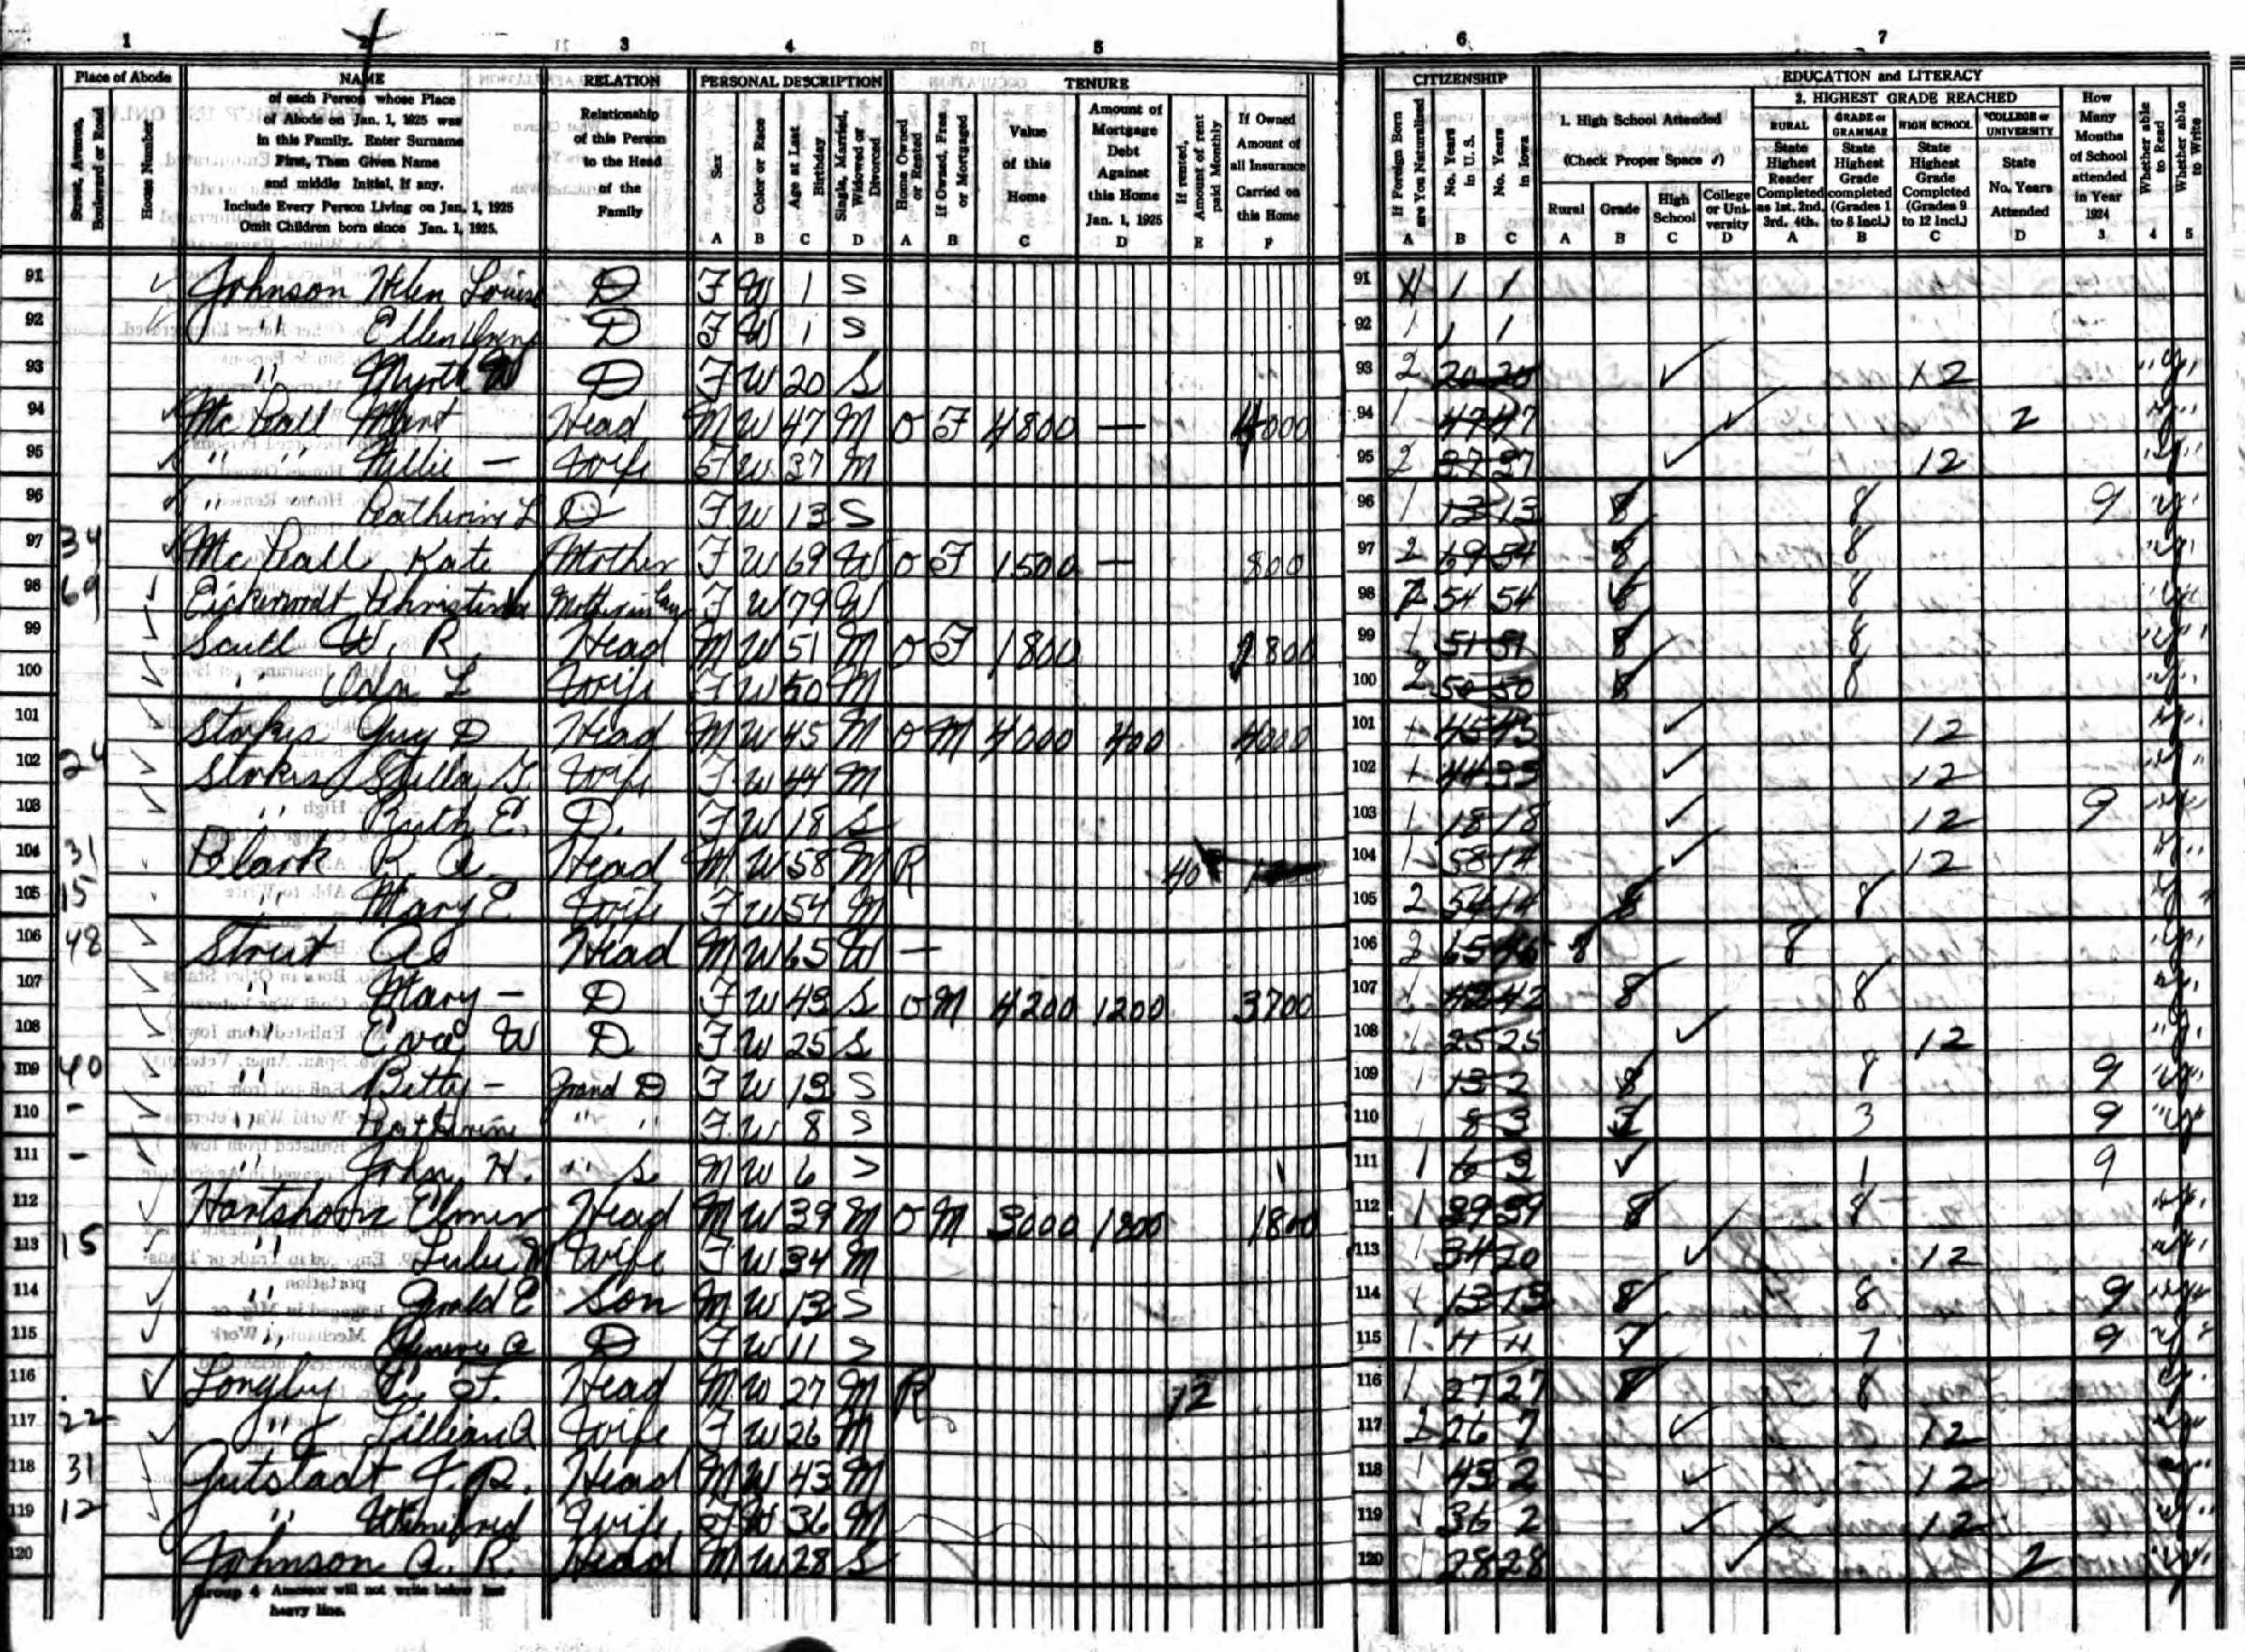 1 2 3 4 5 6 7
Place of Abode NAME RELATION PERSONAL DESCRIPTION TENURE CITIZENSHIP EDUCATION and LITERACY
Street, Avenue, Boulevard or Road
House Number
of each Person whose Place
of Abode on Jan. 1, 1925 was
in this Family. Enter Surname
First, Then Given Name
and middle Initial, if any.
Include Every Person Living on Jan. 1, 1925
Omit Children born since Jan. 1, 1925.
Relationship
of this Person
to the Head
of the
Family
Sex A
Color or Race B
Age at Last Birthday C
Single, Married, Widowed or Divorced D
Home Owned or Rented A
If Owned, Free or Mortgaged B
Value of this Home C
Amount of Mortgage Debt Against this Home Jan. 1, 1925 D
If rented, Amount of rent paid Monthly E
If Owned Amount of all Insurance Carried on this Home F
If Foreign Born are You Naturalized A
No. Years in U. S. B
No. Years in Iowa C
1. High School Attended
(Check Proper Space ✓)
Rural A
Grade B
High School C
College or University D
2. HIGHEST GRADE REACHED
RURAL State Highest Reader Completed as 1st. 2nd, 3rd. 4th. A
GRADE or GRAMMAR State Highest Grade completed (Grades 1 to 8 Incl.) B
HIGH SCHOOL State Highest Grade Completed (Grades 9 to 12 Incl.) C
COLLEGE or UNIVERSITY State No. Years Attended D
How Many Months of School attended in Year 1924 3
Whether able to Read 4
Whether able to Write 5
91 Johnson Helen Louise D F W 1 S 91 1 1
92 " Ellen D F W 1 S 92 1 1 1
93 " Myrtle W D F W 20 S 93 2 20 20 ✓ 12
94 Mc Call Head M W 47 M O F 4800 — 4000 94 1 47 47 ✓ 2
95 " " Nellie — Wife F W 37 M 95 2 37 37 ✓ 12
96 " Catherine L D F W 13 S 96 1 13 13 8 8 9
34 97 Mc Call Kate Mother F W 69 W O F 1500 — 800 97 2 69 54 8 8
69 98 Mother in Law F W 79 W 98 2 54 54 8 8
99 Scull W. R. Head M W 51 M O F 1800 1800 99 1 51 51 8 8
100 " L Wife F W 50 M 100 2 50 50 8 8
101 Stokes Guy D Head M W 45 M O M 4000 400 4000 101 1 45 45 ✓ 12
24 102 Stokes Stella Wife F W 44 M 102 1 44 ✓ 12
103 " Ruth E. D. F W 18 S 103 1 18 18 ✓ 12 9
31 104 Head M W 58 M R 40 104 1 58 14 ✓ 12
15 105 " Mary E Wife F W 54 M 105 2 54 14 8 8
48 106 Streit Head M W 65 W — 106 2 65 46 8 8
107 " Mary — D F W 43 S O M 4200 1200 3700 107 1 42 8 8
108 " W D F W 25 S 108 1 25 25 ✓ 12
40 109 " Betty — Grand D F W 13 S 109 1 13 2 8 8 9
- 110 " Catherine " " F W 8 S 110 1 8 3 3 3 9
- 111 " John H. " S. M W 6 S 111 1 6 ✓ 1 9
112 Hartshorn Elmer Head M W 39 M O M 3000 1800 1800 112 1 39 39 8 8
15 113 " Lulu M Wife F W 34 M 113 1 34 20 ✓ 12
114 " Gerald E Son M W 13 S 114 1 13 13 8 8 9
115 " D F W 11 S 115 1 11 11 7 7 9
116 Longley F. Head M W 27 M R 12 116 1 27 27 8 8
22 117 " Lillian A Wife F W 26 M 117 26 7 ✓ 12
31 118 Gutstadt Head M W 43 M 118 1 43 2 ✓ 12
12 119 " Winifred Wife F W 36 M 119 1 36 2 ✓ 12
120 Johnson A. R. Head M W 28 S 120 1 28 28 ✓ 2
Group 4 Assessor will not write below last
heavy line.